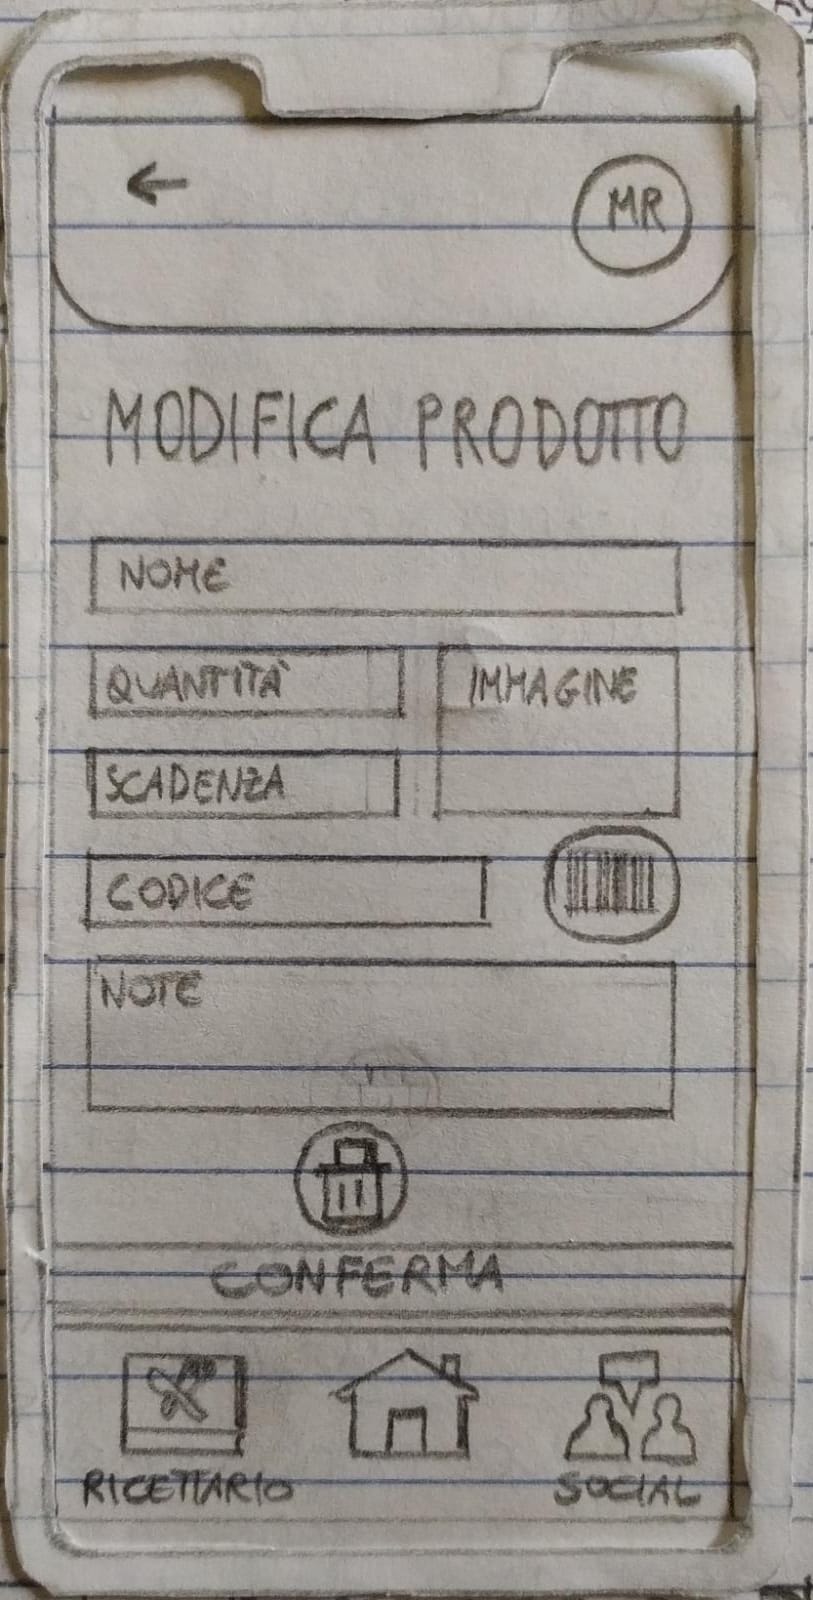 MR
MODIFICA PRODOTTO
NOME
QUANTITÀ
IMMAGINE
SCADENZA
CODICE
NOTE
CONFERMA
RICETTARIO
SOCIAL